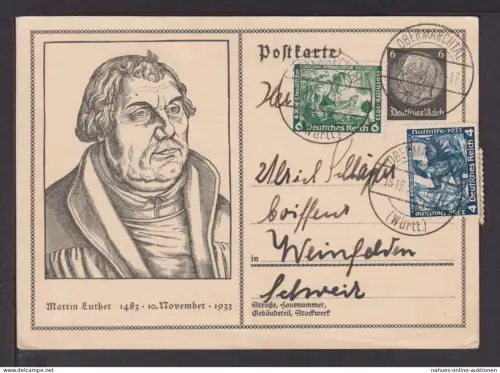 Postkarte
6 6
Deutsches Reich
OBERMARCHTAL
(Württ.)
6 Deutsches Reich 6
Nothilfe·1933
4 Deutsches Reich 4
OBERMARCHTAL
(Württ.)
Ulrich
Coiffeur
in Weinfelden
Schweiz
Straße, Hausnummer,
Gebäudeteil, Stockwerk
Martin Luther 1483 · 10. November · 1933
nahues-online-auktionen